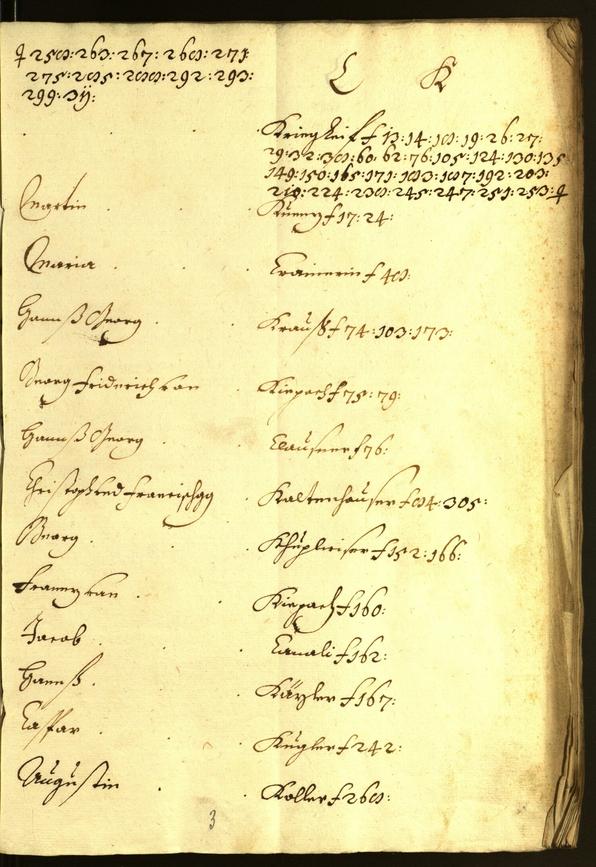 ♀ 258: 263: 267: 268: 271
275: 285: 288: 292: 293:
299: 311:
C K
Kriegkeiss f 13: 14: 18: 19: 26: 27:
29: 32: 38: 60: 62: 76: 105: 124: 130: 135
149: 150: 165: 171: 183: 187: 192: 203:
218: 224: 238: 245: 247: 251: 253: ♀
Martin Küenz f 17: 24:
Maria Cramerin f 48:
Hannß Georg Krauß f 74: 103: 173:
Georg Friderich von Kiepach f 75: 79:
Hannß Georg Clausner f 76:
Christoph und Franciscus Kaltenhauser f 84: 305:
Georg Khüpluiser f 152: 166:
Franz von Kiepach f 160:
Jacob Canali f 162:
Hannß Käzler f 167:
Caspar Kugler f 242:
Augustin Koller f 268:
3